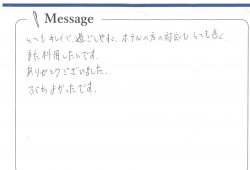 Message
とてもキレイで、過ごしやすく、ホテルの方の対応もとても良く
また利用したいです。
ありがとうございました。
よかったです。